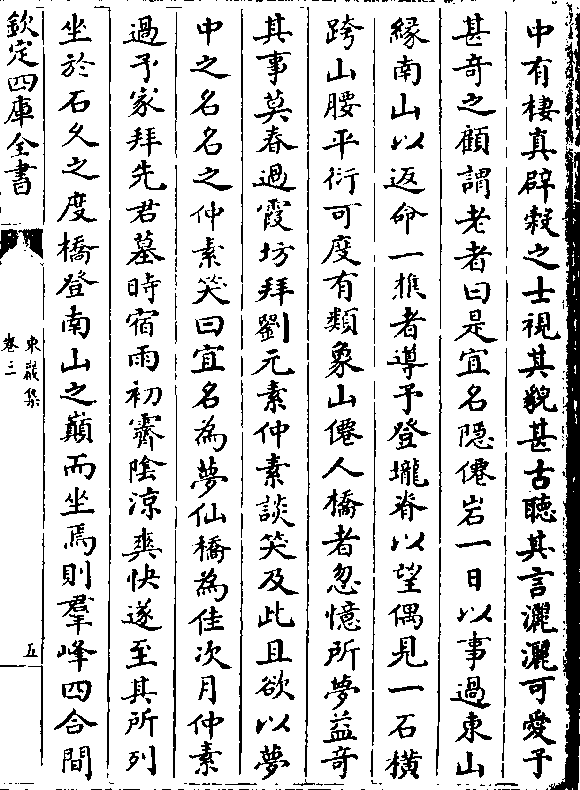 中有棲真辟穀之士視其貌甚古聽其言灑灑可愛予
甚奇之顧謂老者曰是宜名隠僊岩一日以事過東山
縁南山以返命一樵者導予登壠脊以望偶見一石橫
跨山腰平衍可度有類象山僊人橋者忽憶所夢益奇
其事莫春過霞坊拜劉元素仲素談笑及此且欲以夢
中之名名之仲素笑曰宜名為夢仙橋為佳次月仲素
過予家拜先君墓時宿雨初霽陰凉爽快遂至其所列
坐於石久之度橋登南山之巔而坐焉則羣峰四合間
欽定四庫全書
東巖集
卷三
五